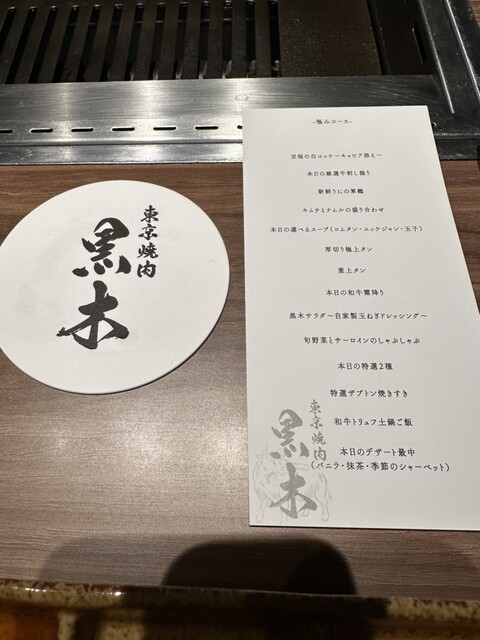 東京焼肉
黒木
-極みコース-
至福の白ユッケ〜キャビア添え〜
本日の厳選牛刺し握り
新鮮うにの軍艦
キムチとナムルの盛り合わせ
本日の選べるスープ(コムタン・ユッケジャン・玉子)
厚切り極上タン
葱上タン
本日の和牛霜降り
黒木サラダ〜自家製玉ねぎドレッシング〜
旬野菜とサーロインのしゃぶしゃぶ
本日の特選2種
特選ザブトン焼きすき
和牛トリュフ土鍋ご飯
本日のデザート最中
(バニラ・抹茶・季節のシャーベット)
東京焼肉
黒木